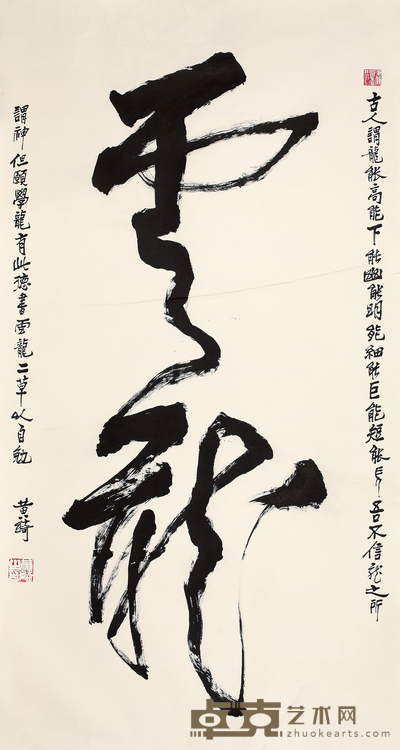 雲龍
古人謂龍能高能下能幽能明能細能巨能短能長吾不信龍之所
謂神但願學龍有此德書雲龍二草以自勉
黄綺
卓克艺术网
zhuokearts.com